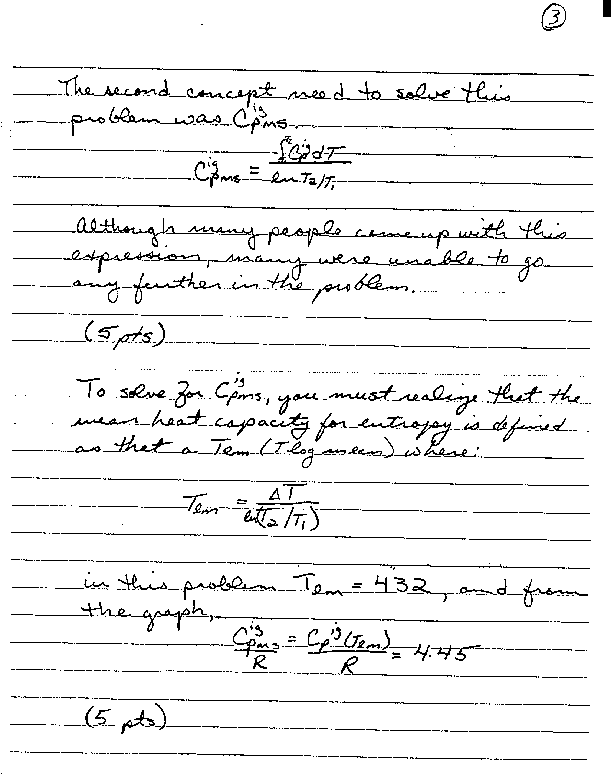 3
The second concept need to solve this
problem was Cp^ig ms.
Cp^ig ms = ∫Cp^ig dT / ln T2/T1
Although many people came up with this
expression, many were unable to go
any further in the problem.
(5 pts)
To solve for Cp^ig ms, you must realize that the
mean heat capacity for entropy is defined
as that a Tem (T log mean) where:
Tem = ΔT / ln(T2/T1)
in this problem Tem = 432, and from
the graph,
Cp^ig ms / R = Cp^ig (Tem) / R = 4.45
(5 pts)